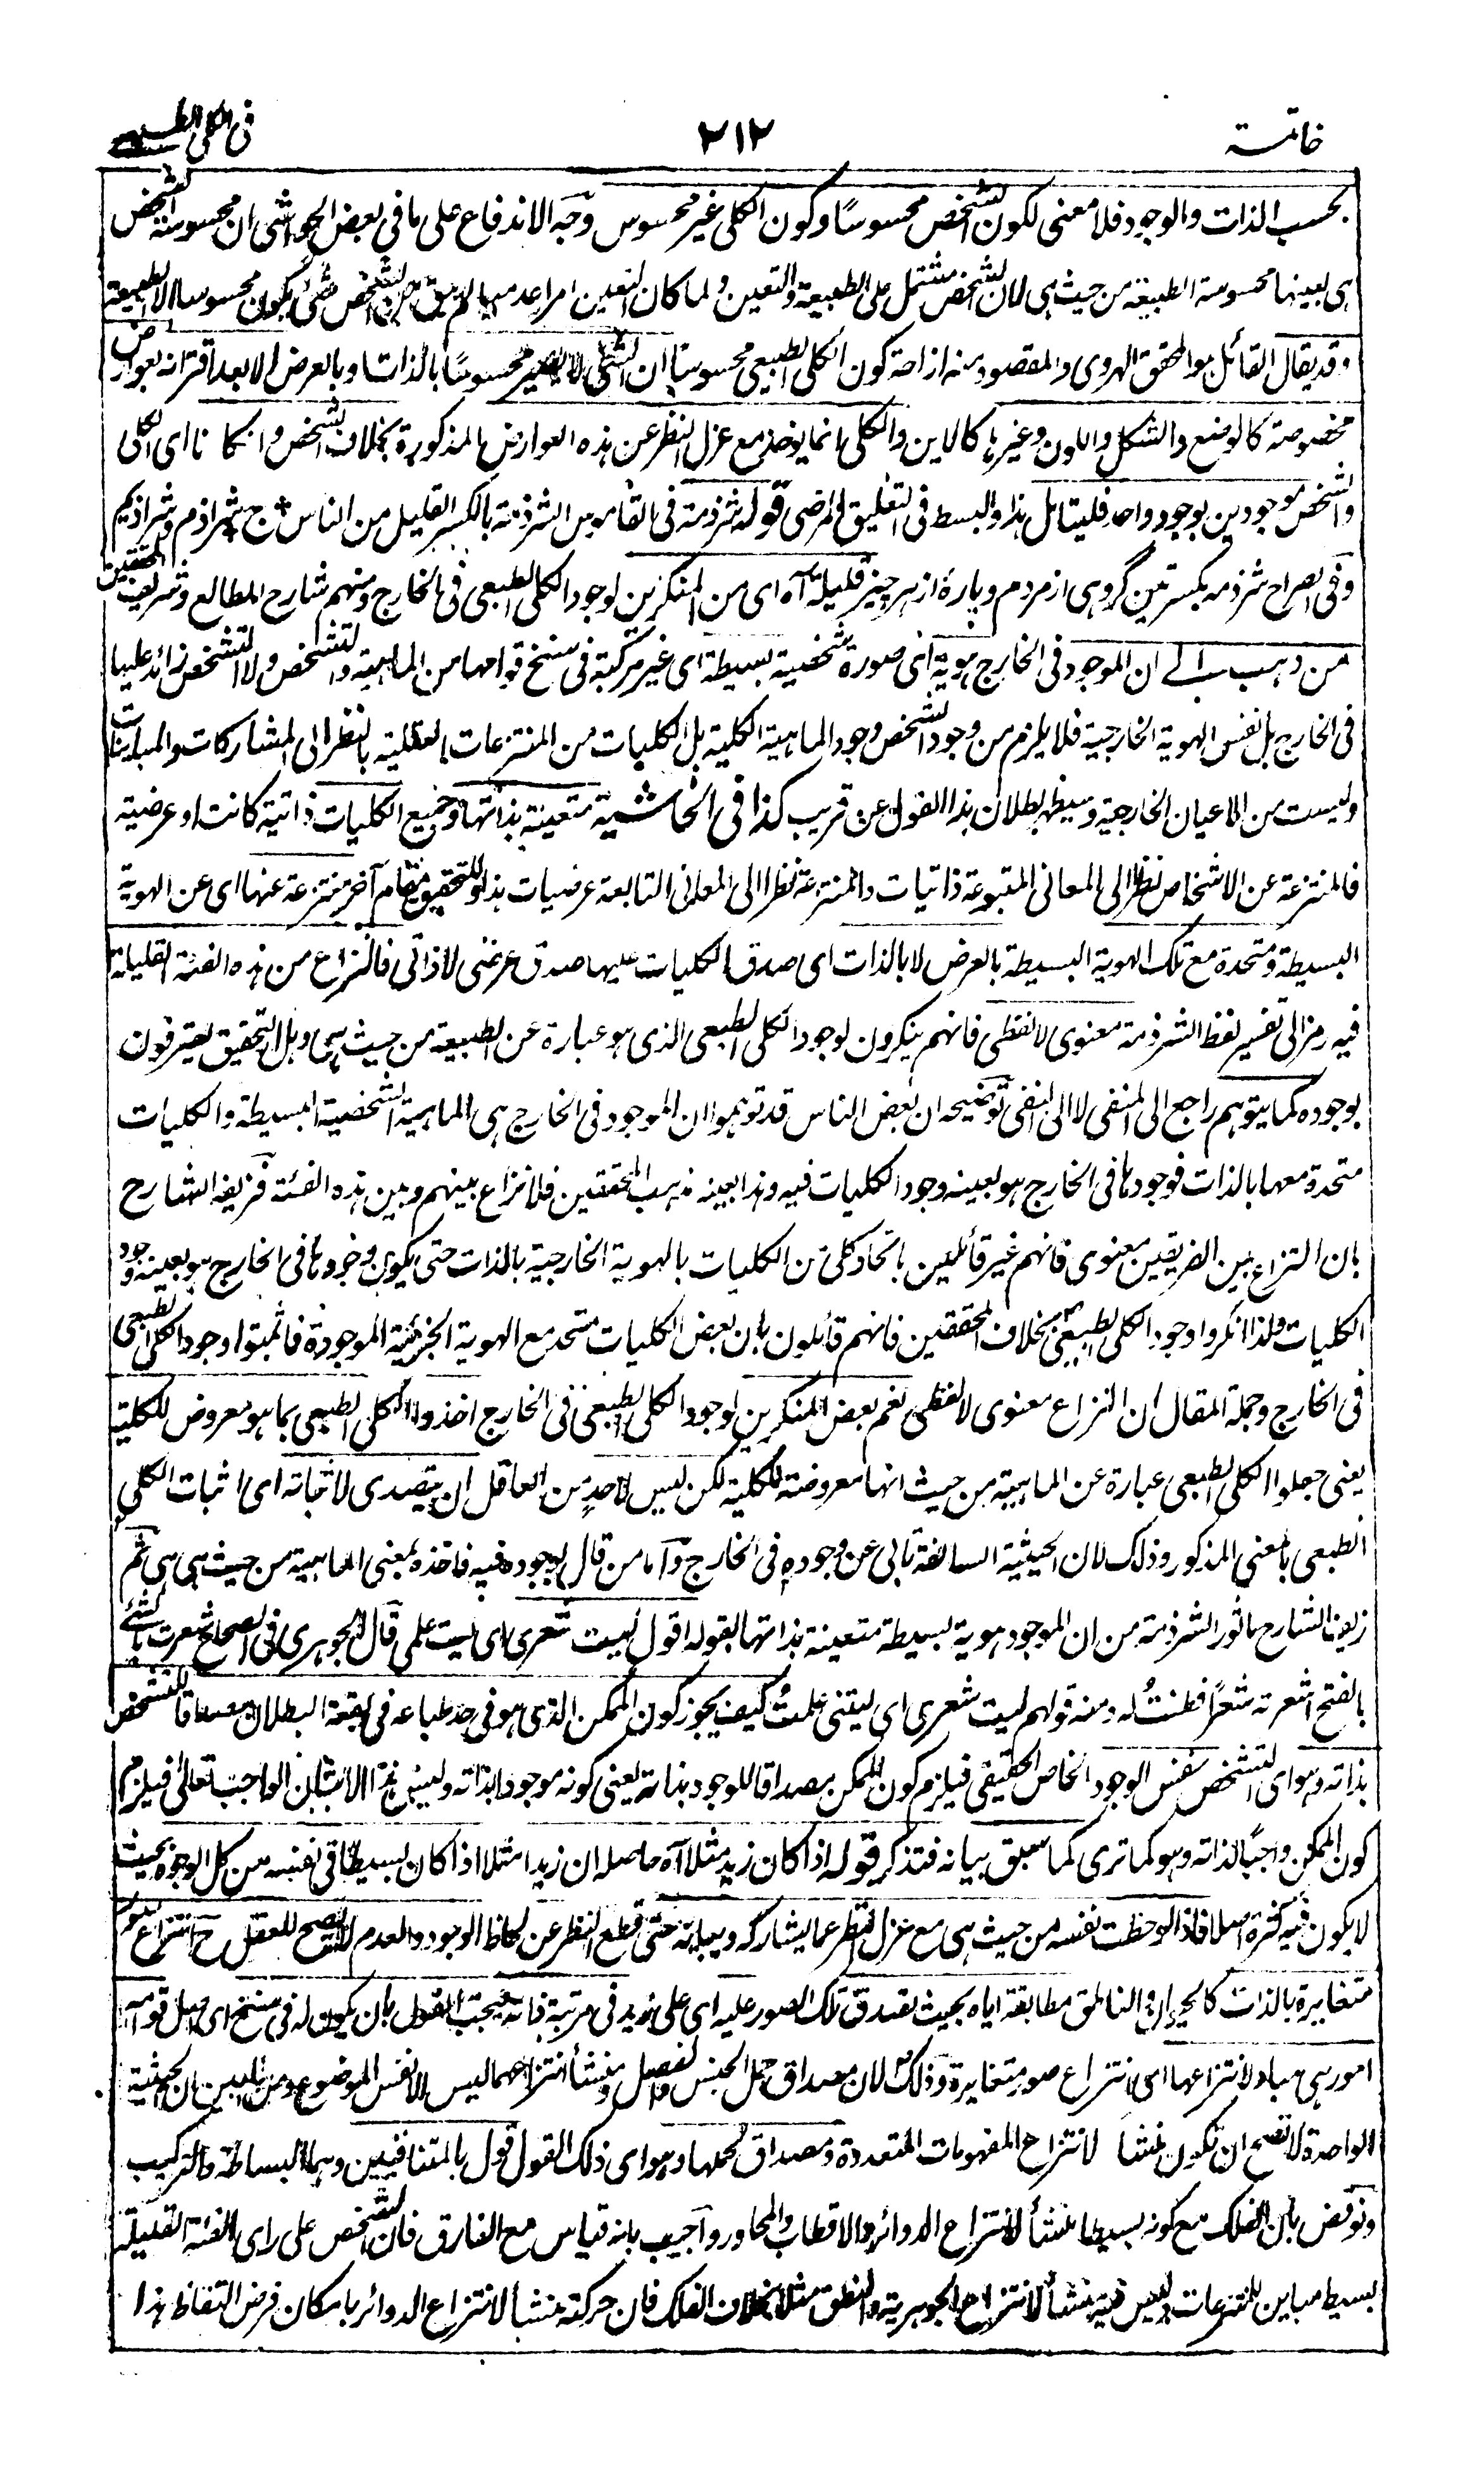 خاتمة
٢١٢
فى الكلى الطبيعى
بحسب الذات والوجود فلا معنى لكون الشخص محسوسًا وكون الكلى غير محسوس وجه الاندفاع على ما فى بعض الحواشى ان محسوسية الشخص
هى بعينها محسوسية الطبيعة من حيث هى لان الشخص مشتمل على الطبيعة والتعين ولما كان التعين امرا عدميا لم يبق من الشخص شئ يكون محسوسا الا الطبيعة
وقد يقال القائل هو المحقق الهروى والمقصود منه ازاحة كون الكلى الطبيعى محسوسا ان الشئ لا يصير محسوسًا بالذات او بالعرض الا بعد اقترانه بعوارض
مخصوصة كالوضع والشكل واللون وغيرها كالاين والكلى انما يوخذ مع عزل النظر عن هذه العوارض المذكورة بخلاف الشخص وان كانا اى الكلى
والشخص موجودين بوجود واحد فليتامل هذا والبسط فى التعليق المرضى قوله شرذمة فى القاموس الشرذمة بالكسر القليل من الناس ج شراذم وشراذيم
وفى الصراح شرذمه بكسرتين گروهى از مردم وپارۀ از هر چيز قليلة آه اى من المنكرين لوجود الكلى الطبعى فى الخارج ومنهم شارح المطالع وشريف المحققين
من ذهب الے ان الموجود فى الخارج هوية اى صورة شخصية بسيطة اى غير مركبة فى سنخ قوامها من الماهية والتشخص ولا التشخص زائد عليها
فى الخارج بل نفس الهوية الخارجية فلا يلزم من وجود الشخص وجود الماهية الكلية بل الكليات من المنتزعات العقلية بالنظر الى المشاركات والمباينات
وليست من الاعيان الخارجية وسيظهر بطلان هذا القول عن قريب كذا فى الحاشية متعينة بذاتها وجميع الكليات ذاتية كانت او عرضية
فالمنتزعة عن الاشخاص نظرا الى المعانى المتبوعة ذاتيات والمنتزعة نظرا الى المعانى التابعة عرضيات هذا وللتحقيق مقام آخر منتزعة عنها اى عن الهوية
البسيطة ومتحدة مع تلك الهوية البسيطة بالعرض لا بالذات اى صدق الكليات عليها صدق عرضى لا ذاتى فالنزاع من هذه الفئة القليلة
فيه رمز الى تفسير لفظ الشرذمة معنوى لا لفظى فانهم ينكرون لوجود الكلى الطبعى الذى هو عبارة عن الطبيعة من حيث هى واهل التحقيق يعترفون
بوجوده كما يتوهم راجع الى المنفى لا الى النفى توضيحه ان بعض الناس قد توهموا ان الموجود فى الخارج هى الماهية الشخصية البسيطة والكليات
متحدة معها بالذات فوجودها فى الخارج هو بعينه وجود الكليات فيه وهذا بعينه مذهب المحققين فلا نزاع بينهم وبين هذه الفئة فزيفه الشارح
بان النزاع بين الفريقين معنوى فانهم غير قائلين باتحاد كلى من الكليات بالهوية الخارجية بالذات حتى يكون وجودها فى الخارج هو بعينه وجود
الكليات ولذا انكروا وجود الكلى الطبيعى بخلاف المحققين فانهم قائلون بان بعض الكليات متحد مع الهوية الجزئية الموجودة فاثبتوا وجود الكلى الطبعى
فى الخارج وجملة المقال ان النزاع معنوى لا لفظى نعم بعض المنكرين لوجود الكلى الطبيعى فى الخارج اخذوا الكلى الطبعى بما هو معروض للكلية
يعنى جعلوا الكلى الطبعى عبارة عن الماهية من حيث انها معروضة للكلية لكن ليس لاحد من العاقل ان يتصدى لاثباته اى اثبات الكلى
الطبعى بالمعنى المذكور وذلك لان الحيثية السالفة تأبى عن وجوده فى الخارج وآما من قال بوجوده فيه فاخذه بمعنى الماهية من حيث هى هى ثم
زيف الشارح ماثور الشرذمة من ان الموجود هوية بسيطة متعينة بذاتها بقوله اقول ليت شعرى اى ليت علمى قال الجوهرى فى الصحاح شعرت بالشئ
بالفتح اشعر به شعرًا فطنتُ له ومنه قولهم ليت شعرى اى ليتنى علمتُ كيف يجوز كون الممكن الذى هو فى حد طباعه فى بقعة البطلان مصداقا للتشخص
بذاته وهو اى التشخص نفس الوجود الخاص الحقيقى فيلزم كون الممكن مصداقا للوجود بذاته يعنى كونه موجودا بذاته وليس هذا الا شان الواجب تعالى فيلزم
كون الممكن واجبًا لذاته وهو كما ترى كما سبق بيانه فتذكر قوله اذا كان زيد مثلا آه حاصله ان زيدا مثلا اذا كان بسيطا فى نفسه من كل الوجوه بحيث
لا يكون فيه كثرة اصلا فاذا لوحظت نفسه من حيث هى مع عزل النظر عما يشاركه ويباينه حتى قطع النظر عن لحاظ الوجود والعدم لا يصح للعقل ح انتزاع صور
متغايرة بالذات كالحيوان والناطق مطابقة اياه بحيث تصدق تلك الصور عليه اى على زيد فى مرتبة فانه يجب القول بان يكون له فى سنخ اى اصل قوامه
امور هى مباد لانتزاعها اى انتزاع صور متغايرة وذلك لان مصداق حمل الجنس والفصل ومنشأ انتزاعهما ليس الا نفس الموضوع ومن البين ان الحيثية
الواحدة لا تصح ان تكون منشا لانتزاع المفهومات المتعددة ومصداق لحملها وهو اى ذلك القول قول بالمتنافيين وهما البساطة والتركيب
ونوقض بان الفلك مع كونه بسيطا منشأ لانتزاع الدوائر والاقطاب والمحاور واجيب بانه قياس مع الفارق فان الشخص على راى الفئة القليلة
بسيط مباين للمنتزعات وليس فيه منشأ لانتزاع الجوهرية والنطق مثلا بخلاف الفلك فان حركته منشأ لانتزاع الدوائر بامكان فرض النقاط هذا